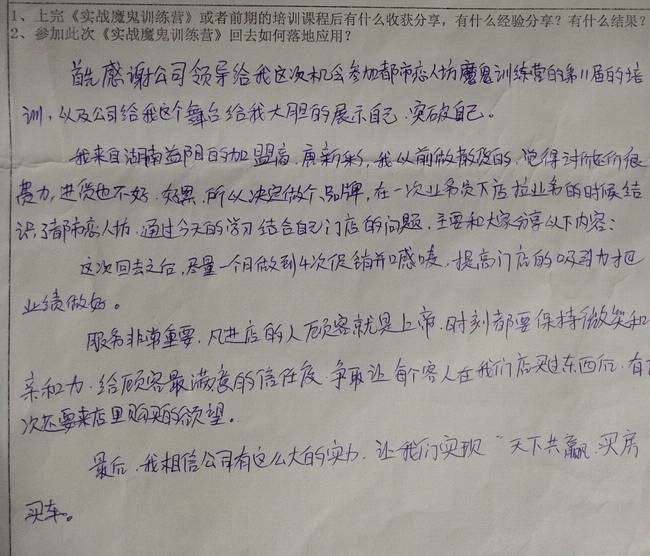 1、上完《实战魔鬼训练营》或者前期的培训课程后有什么收获分享，有什么经验分享？有什么结果？
2、参加此次《实战魔鬼训练营》回去如何落地应用？
首先感谢公司领导给我这次机会参加都市恋人坊魔鬼训练营的第11届的培
训，以及公司给我这个舞台给我大胆的展示自己、突破自己。
我来自湖南益阳的加盟商、唐新彩，我以前做散货的，觉得讨价还价很
费力，进货也不好、好累，所以决定做个品牌，在一次业务员下店拉业务的时候结
识了都市恋人坊。通过今天的学习结合自己门店的问题，主要和大家分享以下内容：
这次回去之后，尽量一个月做到4次促销并喊唛，提高门店的吸引力把
业绩做好。
服务非常重要，凡进店的人顾客就是上帝，时刻都要保持微笑和
亲和力，给顾客最满意的信任度，争取让每个客人在我们店买过东西后，有下
次还要来店里购买的欲望。
最后，我相信公司有这么大的实力，让我们实现“天下共赢、买房
买车。